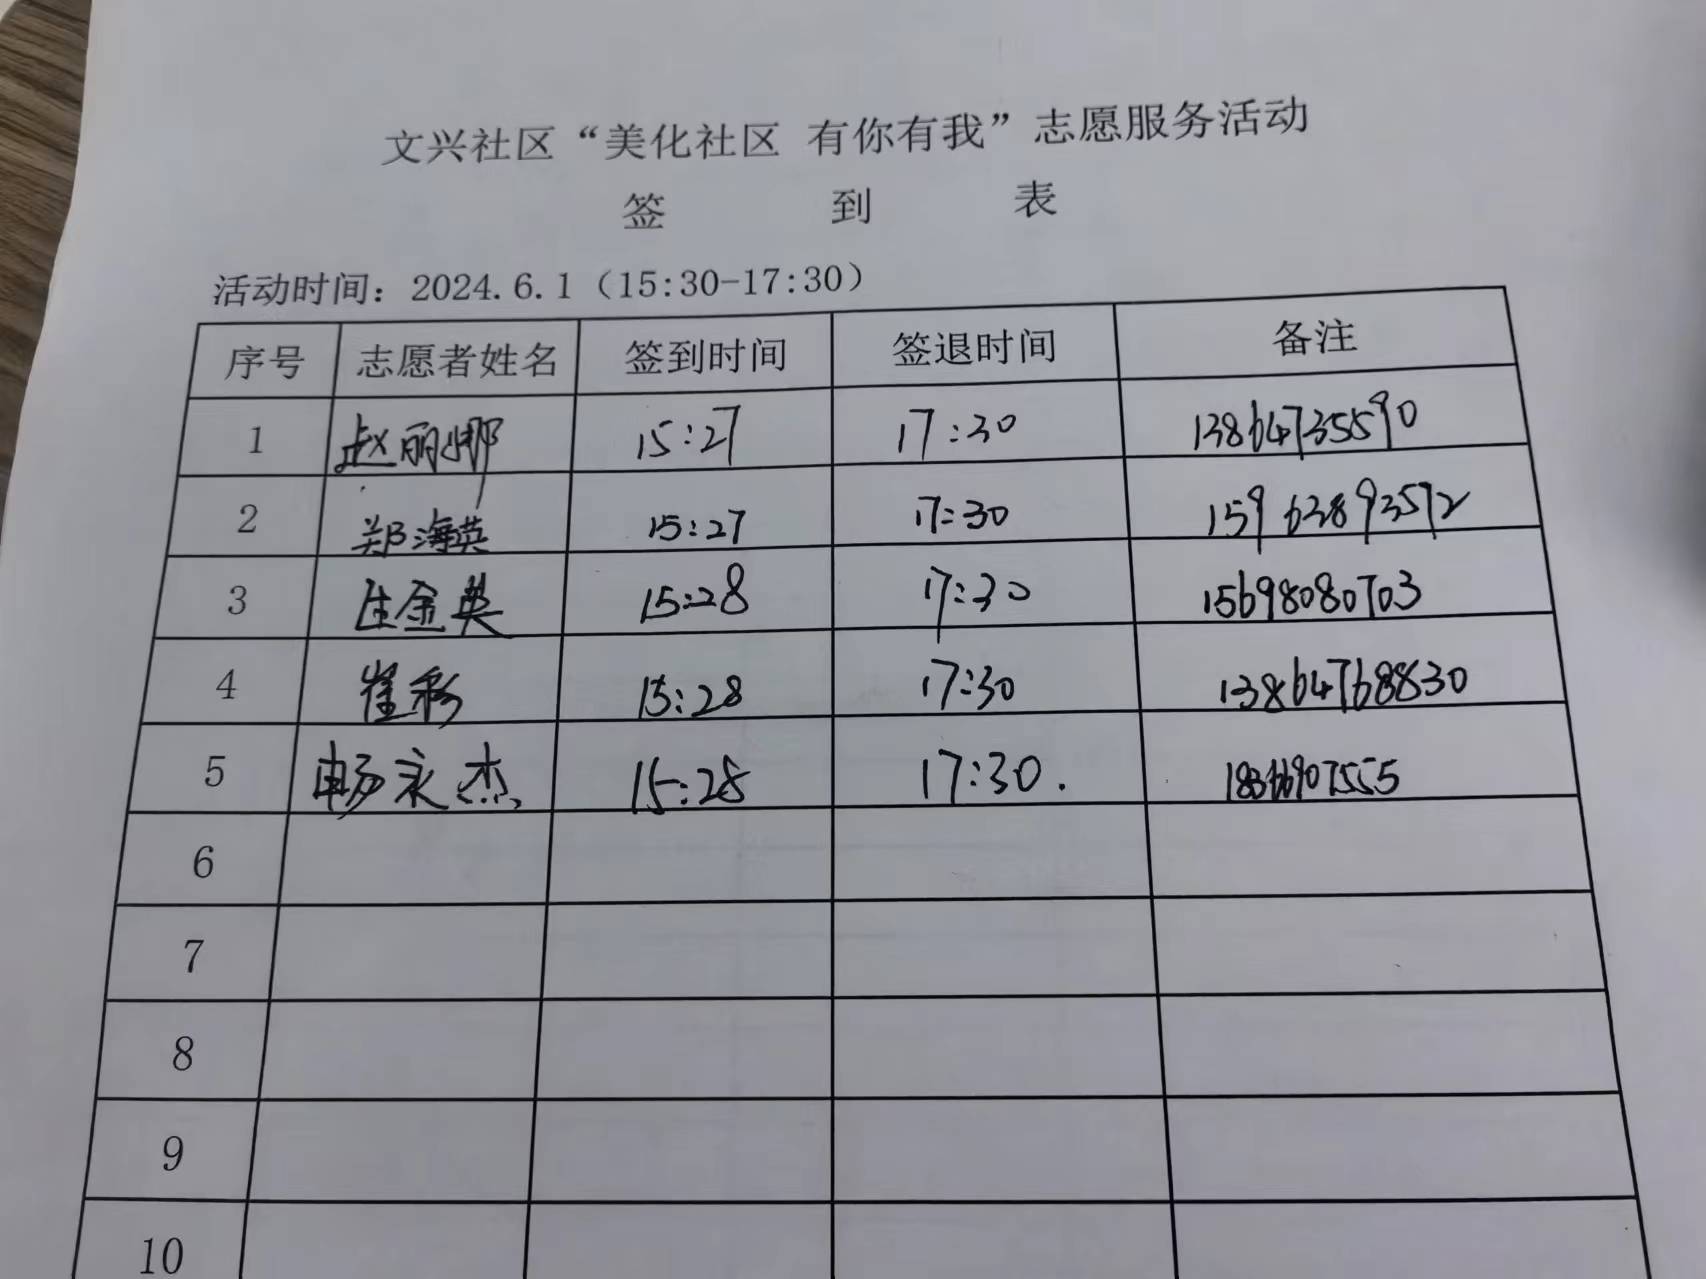 文兴社区“美化社区 有你有我”志愿服务活动
签 到 表
活动时间：2024.6.1（15:30-17:30）
序号 志愿者姓名 签到时间 签退时间 备注
1 赵丽娜 15:27 17:30 13864735590
2 郑海英 15:27 17:30 15963893592
3 庄金英 15:28 17:30 15698080703
4 崔彩 15:28 17:30 13864768830
5 杨永杰 15:28 17:30.
6
7
8
9
10